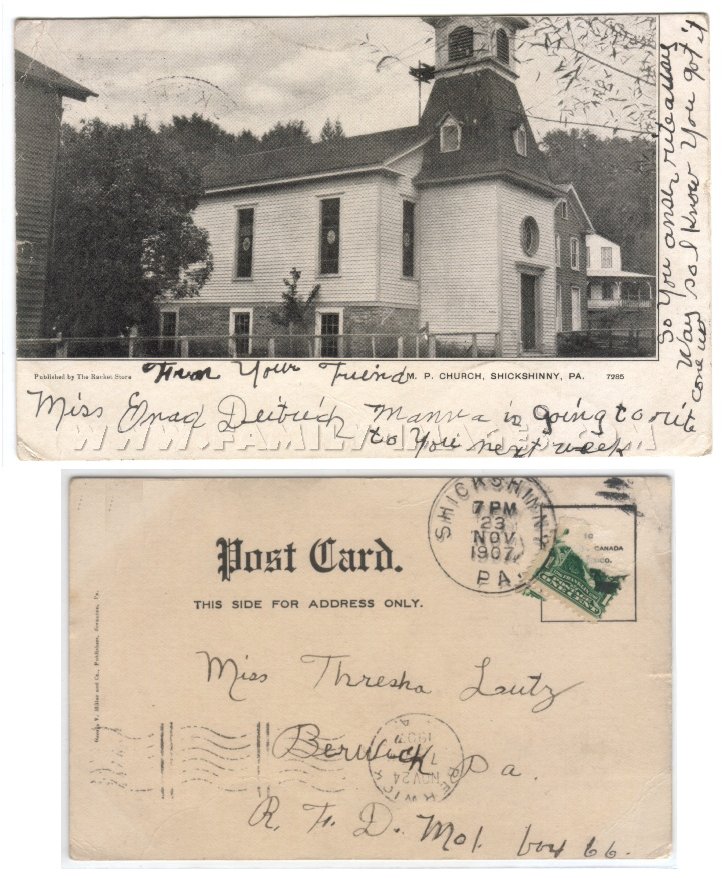 So You anser
Way so I know You got it
Published by The Racket Store
From Your Friend
M. P. CHURCH, SHICKSHINNY, PA. 7285
Miss Deitrich Mamma is going to rite
to You next week
WWW.FAMILY
SHICKSHINNY
7 PM
23
NOV
1907
PA.
CANADA
Post Card.
THIS SIDE FOR ADDRESS ONLY.
George V. Millar and Co., Publishers, Scranton, Pa.
Miss Thresha Lautz
Berwick Pa.
R. F. D. No1. box 66.
BERWICK
NOV 24
1907